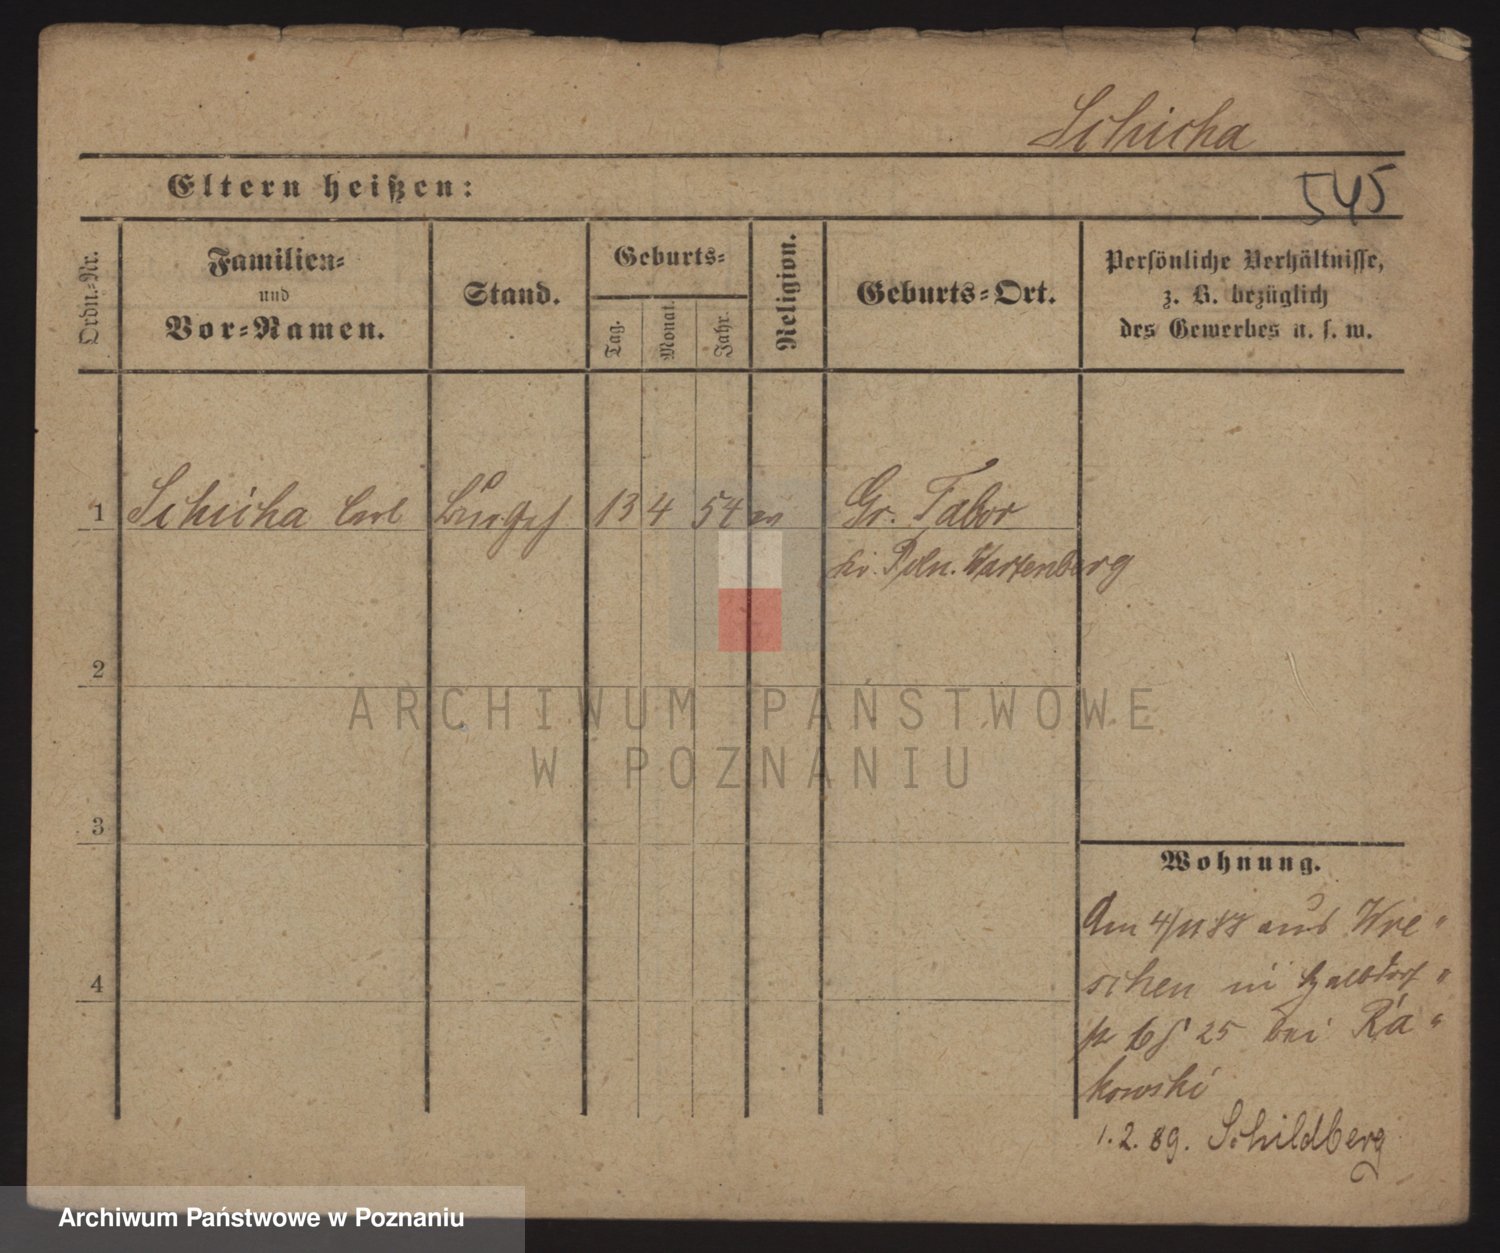 Schicha
Eltern heißen:
545
Ordn.-Nr.
Familien-
und
Vor-Namen.
Stand.
Geburts-
Tag.
Monat.
Jahr.
Religion.
Geburts-Ort.
Persönliche Verhältnisse,
z. B. bezüglich
des Gewerbes u. s. w.
1
Schicha Carl
13
4
54
Gr. Tabor
Poln. Wartenberg
2
ARCHIWUM PAŃSTWOWE
W POZNANIU
3
Wohnung.
4
Am 4/11 88 aus Wre-
schen in Halbdorf-
25 bei Ra-
kowski
1. 2. 89. Schildberg
Archiwum Państwowe w Poznaniu